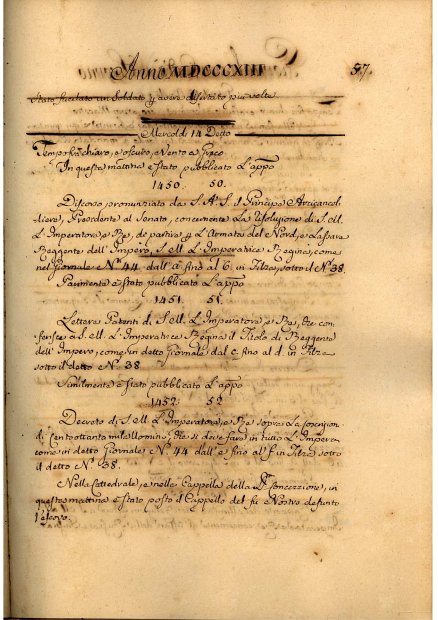 Anno MDCCCXIII
57.
Stato fucilato un Soldato p avere disertato più volte.
Mercoldi 14 Detto
Tempo chiaro, e oscuro, e Vento a Greco
In questa mattina è stato pubblicato L'appo
1450. 50.
Discorso pronunziato da S. A. S. il Principe Arcicancel-
liere, Presidente al Senato, concernente La Risoluzione di S. M.
L'Imperatore e Re, di partire p L'Armata del Nord, e Lasciare
Reggente dell'Impero, S. M. L'Imperatrice Regina, come
nel Giornale N° 44 dall' a fino al b in Filze, sotto il N° 38.
Parimente è stato pubblicato L'appo
1451. 51.
Lettere Patenti di S. M. L'Imperatore, e Re, che con-
ferisce a S. M. L'Imperatrice Regina il Titolo di Reggente
dell'Impero, come in detto Giornale dal c. fino al d. in Filze
sotto il detto N° 38
Similmente è stato pubblicato L'appo
1452. 52
Decreto di S. M. L'Imperatore, e Re sopra La
di Centottanta mila Uomini, che si deve fare in tutto L'Impero
come in detto Giornale N° 44 dall' e fino al f in Filze sotto
il detto N° 38.
Nella Cattedrale, e nella Cappella della Concezzione, in
questa mattina è stato posto il Cappello del fu e Nostro defunto
Vescovo.